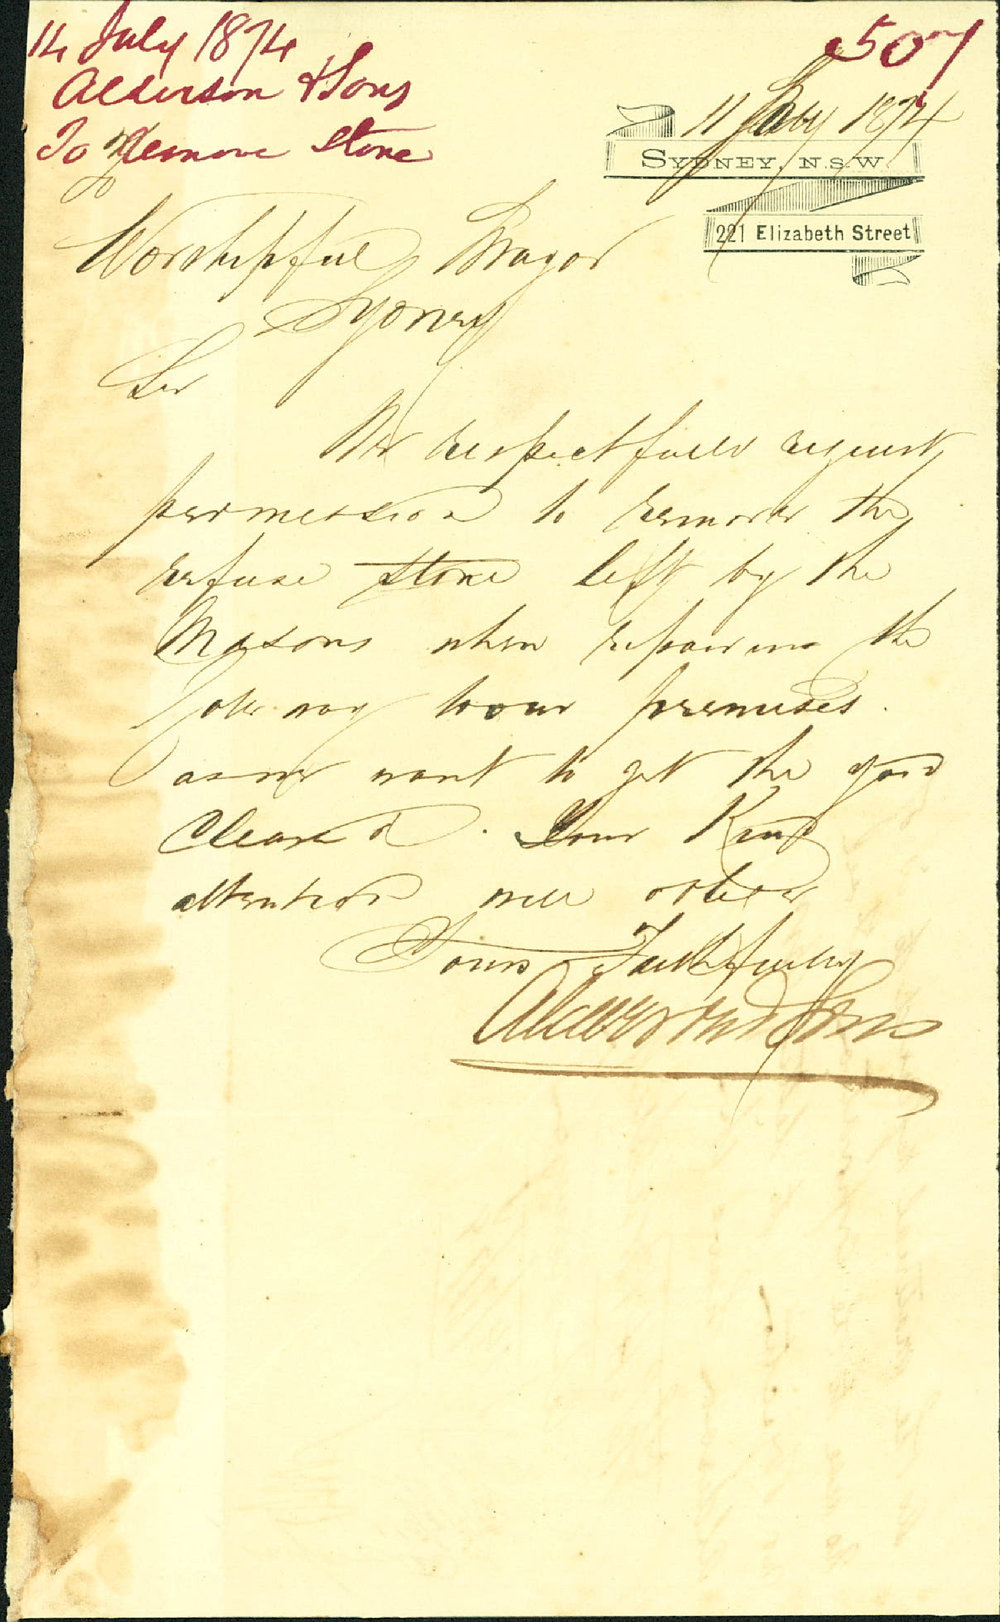 14 July 1874
Alderson & Sons
To Remove Stone
507
11 July 1874
SYDNEY, N.S.W
221 Elizabeth Street
Worshipful Mayor
Sydney
Sir
We respectfully request
permission to remove the
refuse stone left by the
Masons when repairing the
to our premises.
as we want to get the yard
Cleared. Your Kind
attention will oblige
Yours Faithfully
Alderson and Sons